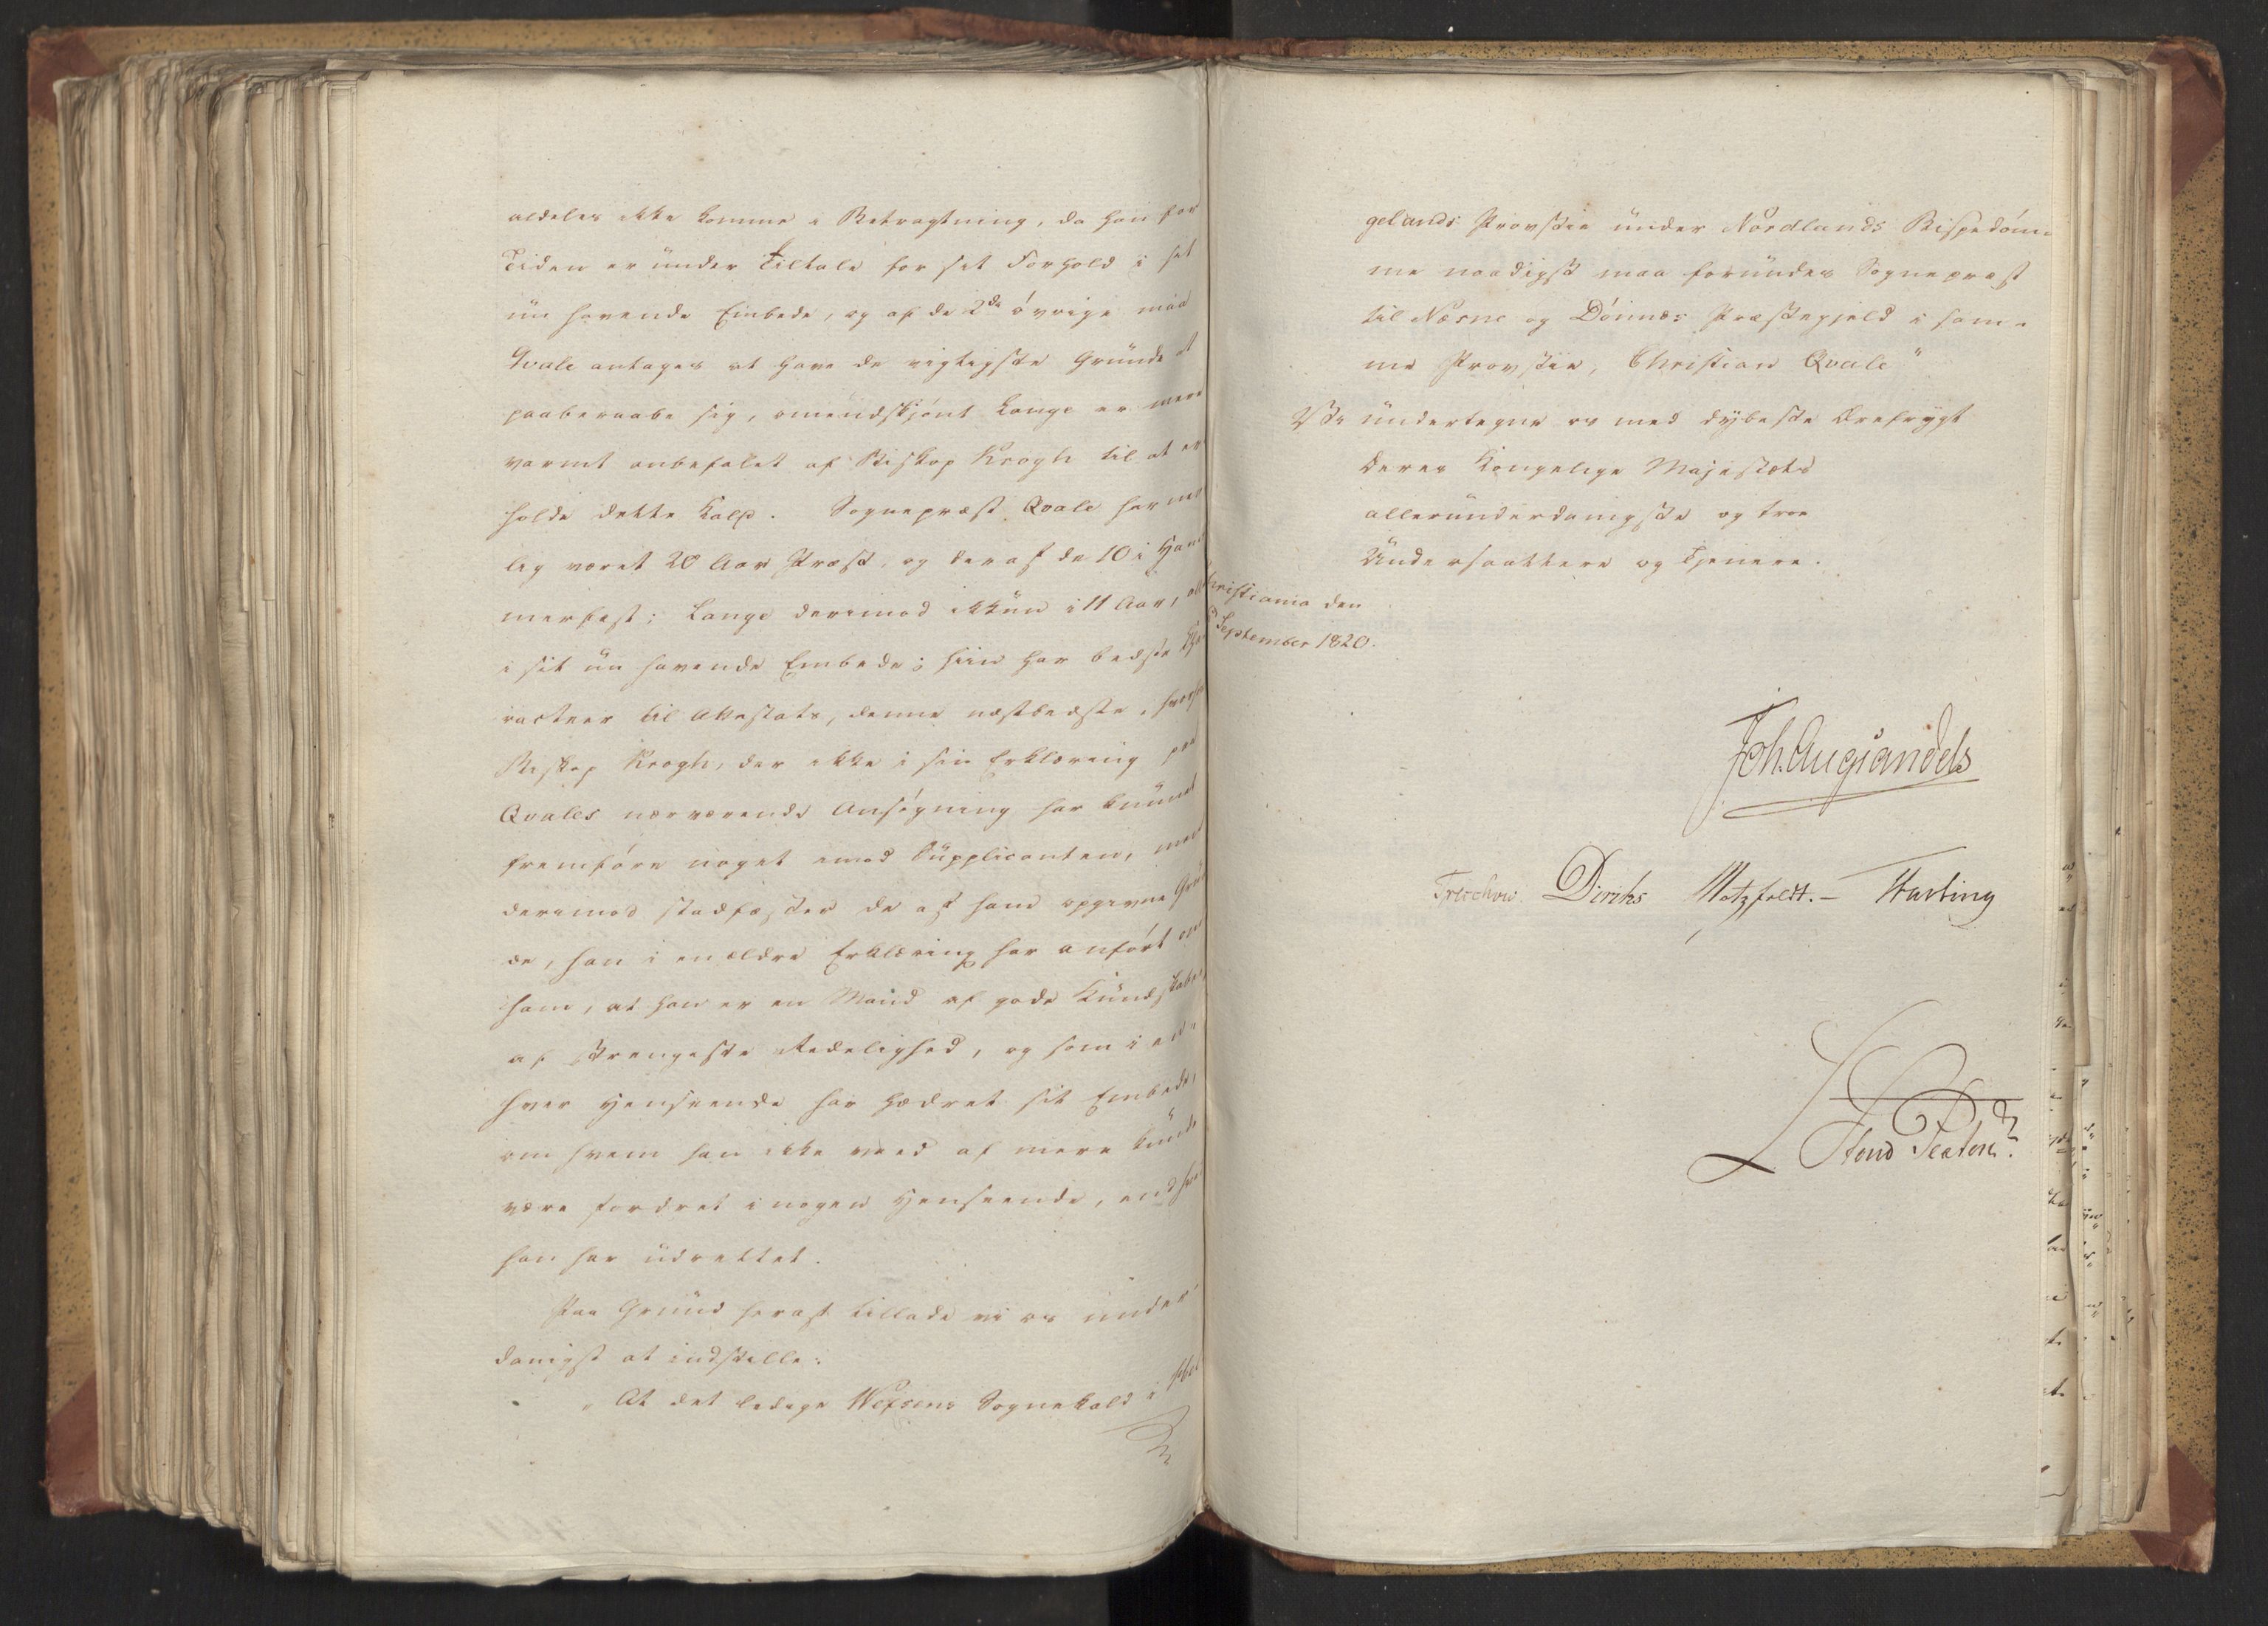 aldeles ikke komme i Betragtning, da han for
Tiden er under Tiltale for sit Forhold i sit
nu havende Embede, og af de 2de övrige maa
Qvale antages at have de vigtigste Grunde at
paaberaabe sig, omendskjönt Lange er mere
varmt anbefalet af Biskop Krogh til at er
holde dette Kald. Sognepræst Qvale har nem
lig været 20 Aar Præst, og deraf de 10 i Ham
merfest; Lange derimod ikkun i 11 Aar, all
i sit nu havende Embede; hiin har bedste Cha
racteer til Attestats, denne næstbedste, hvorhos
Biskop Krogh, der ikke i sin Erklæring paa
Qvales nærværende Ansögning har kunnet
fremföre noget imod Supplicanten, men
derimod stadfæster de af ham opgivne Grun
de, han i en ældre Erklæring har anfört om
ham, at han er en Mand af gode Kundskaber,
af strengeste Redelighed, og som i en-
hver Henseende har hædret sit Embede,
om hvem han ikke veed at mere kunde
være fordret i nogen Henseende, end hvad
han har udrettet.
Paa Grund heraf tillade vi os under
danigst at indstille:
"At det ledige Wefsens Sognekald i Hel
gelands Provstie under Nordlands Bispedöm-
me naadigst maa forundes Sognepræst
til Næsne og Dönnæs Præstegjeld i sam-
me Provstie, Christian Qvale"
Vi undertegne os med dybeste Ærefrygt
Deres Kongelige Majestæts
allerunderdanigste og troe
Undersaattere og Tjenere.
Christiania den
September 1820.
Joh. Aug. Sandels
Treschow Diriks Motzfeldt. - Fasting